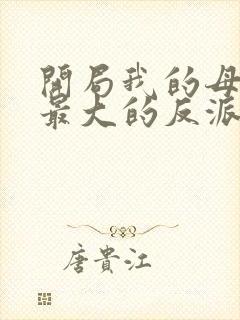 開局我的母
最大的反派
唐貴江